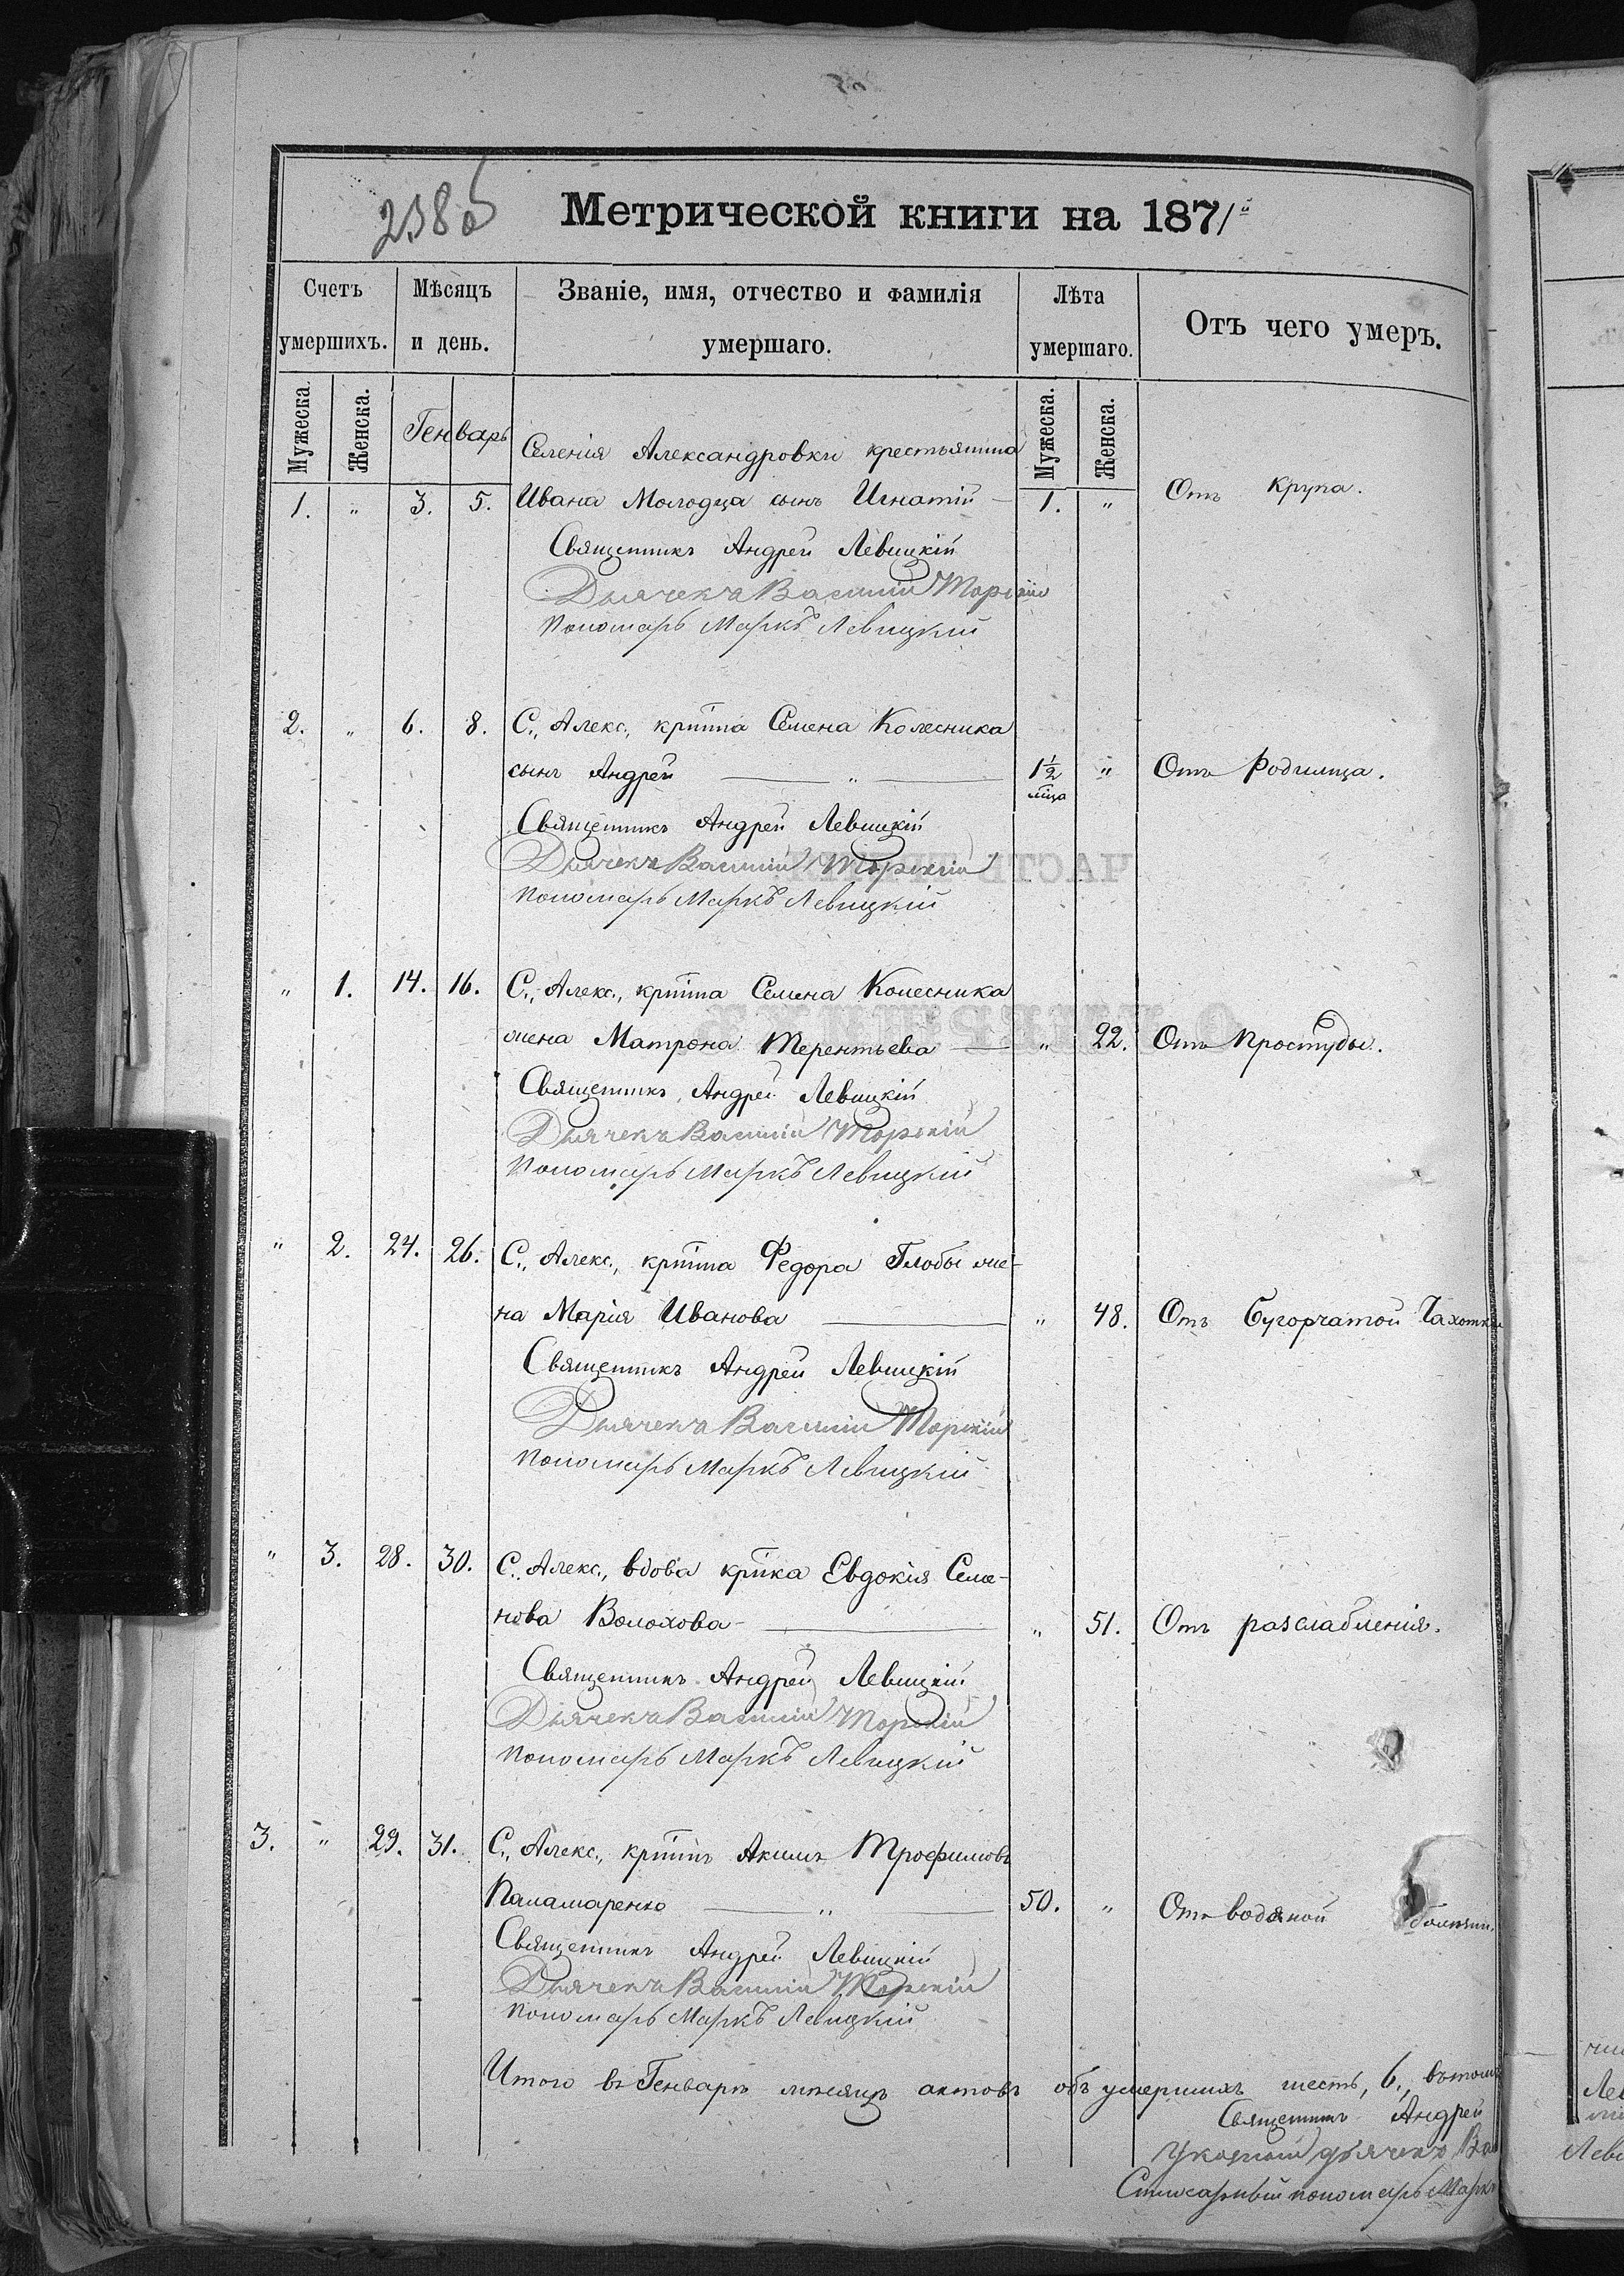 238об
Метрической книги на 1871й
Счетъ умершихъ.
Мѣсяцъ и день.
Званіе, имя, отчество и фамилія умершаго.
Лѣта умершаго.
Отъ чего умеръ.
Мужеска.
Женска.
Генварь
Мужеска.
Женска.
Селенія Александровки крестьянина
1. " 3. 5. Ивана Молодца сынъ Игнатій — 1. " Отъ крупа.
Священникъ Андрей Левицкій
Дьячекъ Василій Торскій
Пономарь Маркъ Левицкій
2. " 6. 8. С., Алекс., кртина Семена Колесника
сынъ Андрей — " — 1½ мца " Отъ родимца.
Священникъ Андрей Левицкій
Дьячекъ Василій Торскій
Пономарь Маркъ Левицкій
" 1. 14. 16. С., Алекс., кртина Семена Колесника
жена Матрона Терентьева — " 22. Отъ простуды.
Священникъ Андрей Левицкій
Дьячекъ Василій Торскій
Пономарь Маркъ Левицкій
" 2. 24. 26. С., Алекс., кртина Федора Глобы же-
на Марія Иванова — " 48. Отъ бугорчатой чахотки
Священникъ Андрей Левицкій
Дьячекъ Василій Торскій
Пономарь Маркъ Левицкій
" 3. 28. 30. С., Алекс., вдова крпка Евдокія Семе-
нова Волохова — " 51. Отъ разслабленія.
Священникъ Андрей Левицкій
Дьячекъ Василій Торскій
Пономарь Маркъ Левицкій
3. " 29. 31. С., Алекс., кртинъ Акимъ Трофимовъ
Паламаренко — " — 50. " Отъ водяной болѣзни.
Священникъ Андрей Левицкій
Дьячекъ Василій Торскій
Пономарь Маркъ Левицкій
Итого въ Генварѣ мѣсяцѣ актовъ объ умершихъ шесть, 6., въ томъ
Священникъ Андрей
Указный дьячекъ Ва
Стихарный пономарь Маркъ